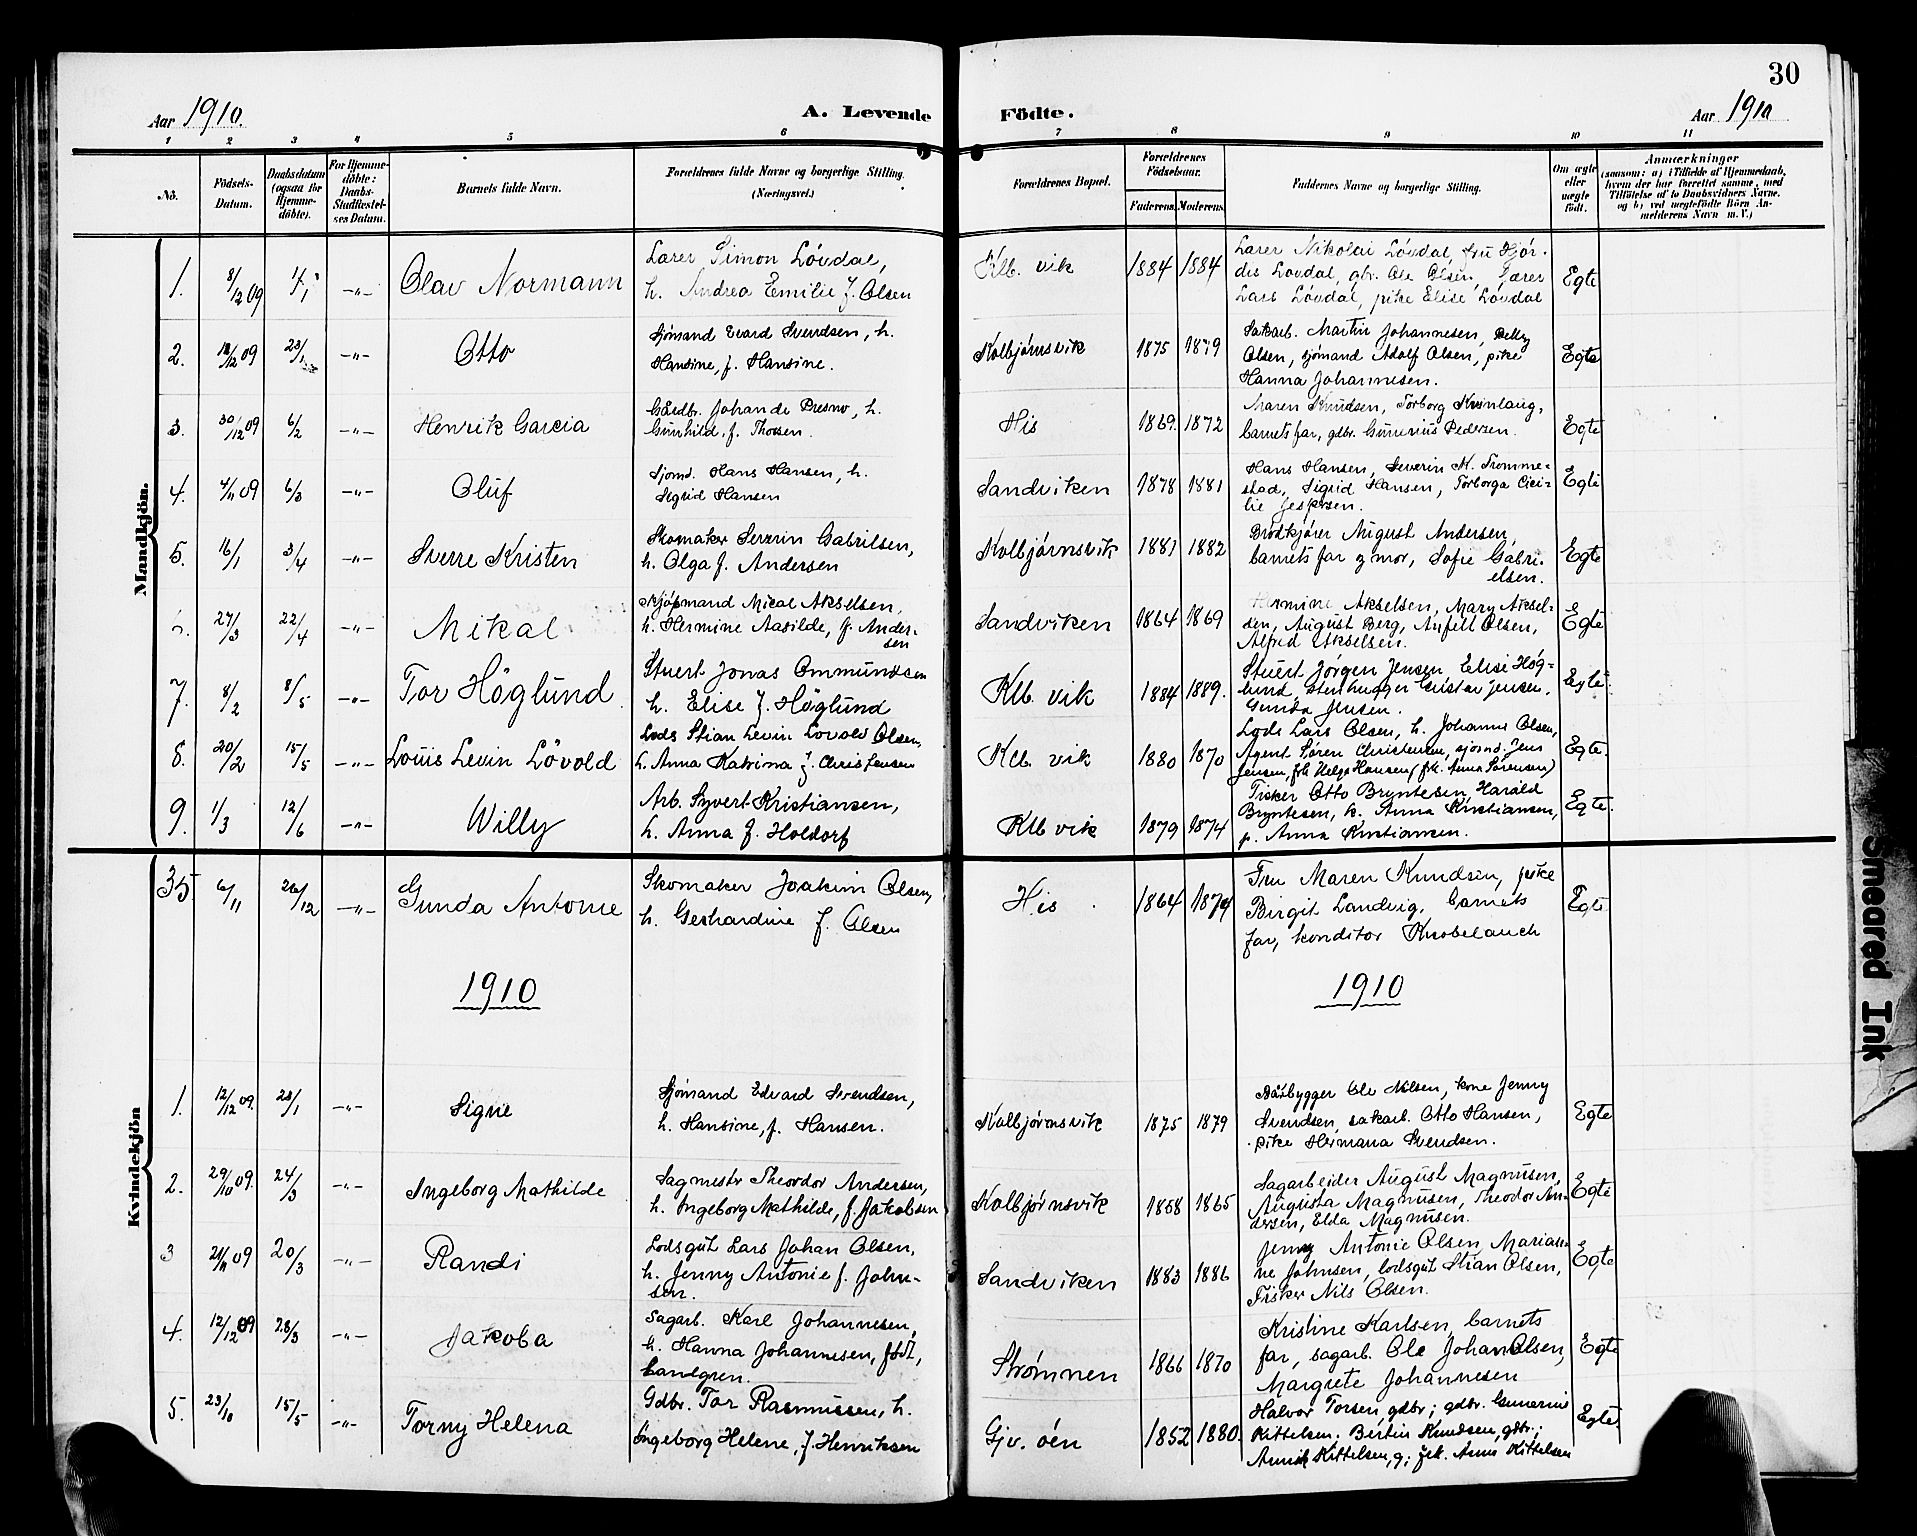 30
Aar 1910.
A. Levende
Födte.
Aar 1910
1 2 3 4 5 6 7 8 9 10 11
No.
Födsels-
Datum.
Daabsdatum
(ogsaa for
Hjemme-
döbte).
For Hjemme-
döbte:
Daabs-
Stadfæstel-
ses Datum.
Barnets fulde Navn.
Forældrenes fulde Navne og borgerlige Stilling.
(Næringsvei.)
Forældrenes Bopæl.
Forældrenes
Födselsaar.
Faderens. Moderens.
Faddernes Navne og borgerlige Stilling.
Om ægte
eller
uægte
födt.
Anmærkninger
(saasom: a) i Tilfælde af Hjemmedaab,
hvem der har forrettet samme, med
Tilföielse af to Daabsvidners Navne,
og b) ved uægtefödte Börn An-
melderens Navn m. V.)
Mandkjön.
1. 8/12 09 -"- Olav Normann
Lærer Simon Lövdal,
h. Andrea Emilie f. Olsen
Klb. vik 1884 1884
Lærer Nikolai Lövdal, fru Hjör-
dis Lövdal, gbr. Ole Olsen, Lærer
Lars Lövdal, pike Elise Lövdal
Egte
2. 18/12 09 23/1 -"- Otto
Sjömand Evard Svendsen, h.
Hansine, f. Hansine.
Kolbjörnsvik 1875 1879
Sakarb. Martin Johannesen,
Olsen, sjömand Adolf Olsen, pike
Hanna Johannesen.
Egte
3. 30/12 09 6/2 -"- Henrik Garcia
Gårdbr. Johan de Presno, h.
Gunhild, f. Thorsen.
His 1869. 1872
Maren Knudsen, Torborg
barnets far, gdbr. Gunerius Pedersen.
Egte
4. 4/11 09 6/3 -"- Oluf
Sjömd. Hans Hansen, h.
Sigrid Hansen
Sandviken 1878 1881
Hans Hansen, Severin M. Tromme-
stad, Sigrid Hansen, Torborga Cici-
lie Jespersen.
Egte
5. 16/1 3/4 -"- Sverre Kristen
Skomaker Severin Gabrilsen,
h. Olga f. Andersen
Kolbjörnsvik 1881 1882
Brödkjörer August Andersen,
barnets far og mor, Sofie Gabri-
elsen.
Egte
27/3 22/4 -"- Mikal
Skjöpmand Mical Akselsen,
h. Hermine Aasilde, f. Ander-
sen
Sandviken 1864 1869
Hermine Akselsen, Mary Aksel-
sen, August Berg, Olsen,
Alfred Akselsen.
Egte
7. 8/2 8/5 -"- Tor Höglund
Stuert Jonas Ommundsen
h. Elise f. Höglund
Klb. vik 1884 1889.
Stuert Jörgen Jensen, Elise Hög-
lund, stenhugger Gustav Jensen.
Gunda Jensen.
Egte.
8. 20/2 15/5 -"- Louis Levin Lövold
Lods Stian Levin Lövold Olsen,
h. Anna Katrina f. Christensen
Klb. vik 1880 1870
Lods Lars Olsen, h. Johanne Olsen,
Agent Sören Christensen, sjömd. Jens
Jensen, frk Helga Hansen, frk. Anna Sörensen)
Egte.
9. 1/3 12/6 -"- Willy
Arb. Syvert Kristiansen,
h. Anna f. Holdorf
Klb vik 1879 1874
Fisker Otto Bryntesen, Harald
Bryntesen, k. Anna Kristiansen,
p. Anna Kristiansen.
Egte.
Kvindekjön
35 6/11 26/12 -"- Gunda Antonie
Skomaker Joakim Olsen,
h. Gerhardine f. Olsen
His 1864 1874
Fru Maren Knudsen, pike
Birgit Landvig, barnets
far, konditor Knobelauch
Egte
1910
1910
1. 12/12 09. 23/1 -"- Signe
Sjömand Edvard Svendsen,
h. Hansine, f. Hansen.
Kolbjörnsvik 1875 1879
Båtbygger Ole Nilsen, kone Jenny
Svendsen, sakarb. Otto Hansen,
pike Hermana Svendsen.
Egte
2. 29/10 09. 24/3 -"- Ingeborg Mathilde
Sagmestr Theordor Andersen,
h. Ingeborg Mathilde, f. Jakobsen
Kolbjörnsvik 1858 1865
Sagarbeider August Magnusen,
Augusta Magnusen, Theodor An-
dersen, Elda Magnusen.
Egte
3 21/11 09 20/3 -"- Randi
Lodsgut Lars Johan Olsen,
h. Jenny Antonie f. John-
sen.
Sandviken 1883 1886
Jenny Antonie Olsen, Marian-
ne Johnsen, lodsgut Stian Olsen,
Fisker Nils Olsen.
Egte
4. 12/12 09 28/3 -"- Jakoba
Sagarb. Karl Johannesen,
h. Hanna Johannesen, födt,
Landgren.
Strömmen 1866 1870
Kristine Karlsen, barnets
far, sagarb. Ole Johan Olsen,
Margrete Johannesen
Egte
5. 23/10 15/5 -"- Torny Helena
Gdbr. Tor Rasmussen, h.
Ingeborg Helene, f Henriksen
Gjv. öen 1852 1880.
Halvor Torsen, gdbr; gdbr. Gunerius
Kittelsen. Bertin Knudsen, gdbr;
Kittelsen, g; frk. Anna Kittelsen
Egte.
Smeared Ink